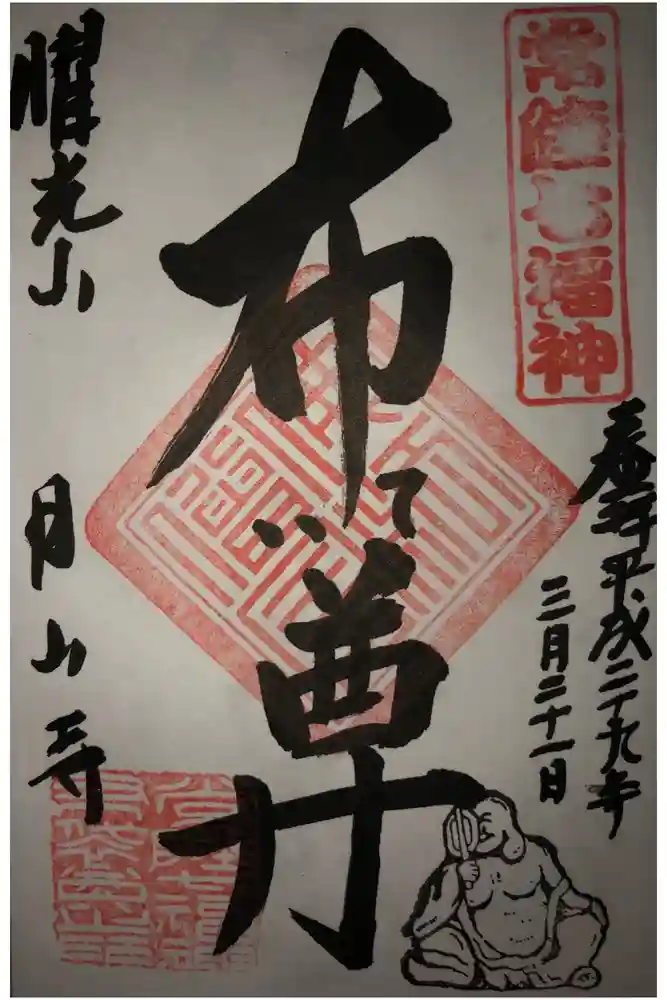 常陸七福神
奉拝平成二十九年
三月三十一日
布てい尊
曜光山
月山寺